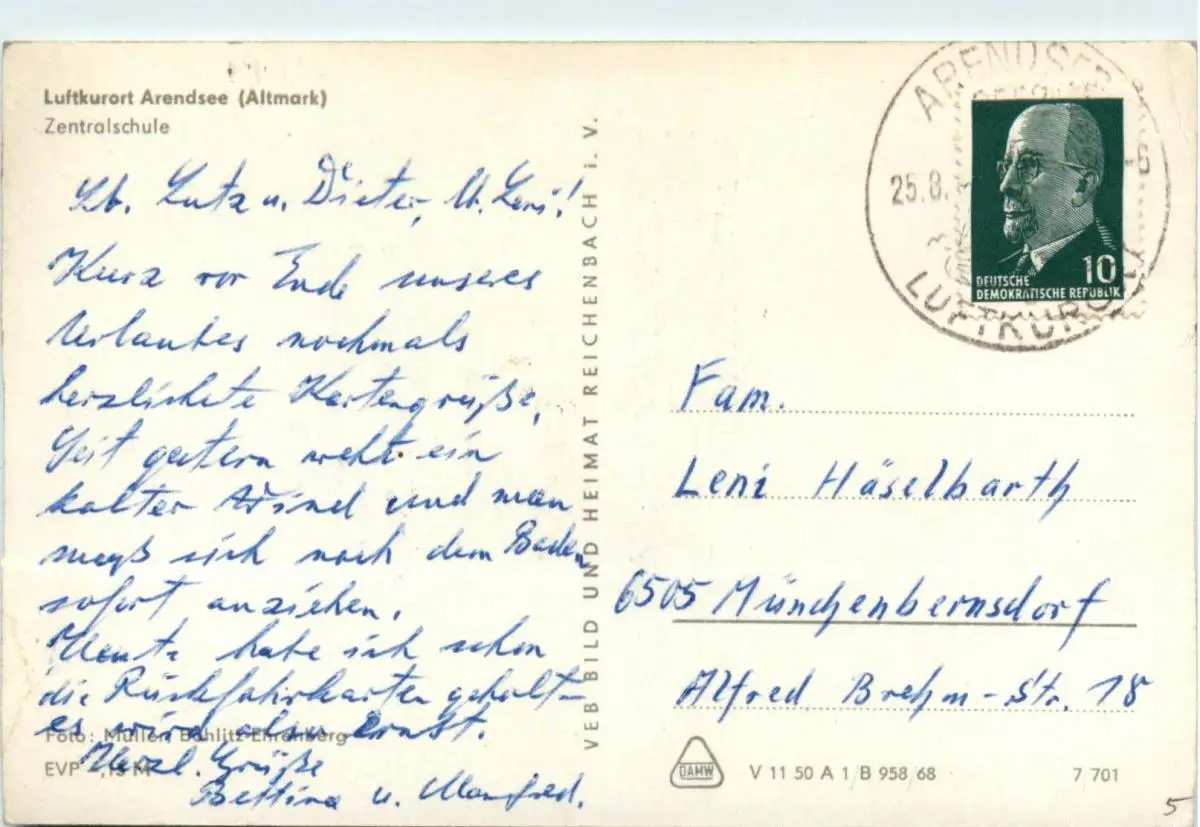 Luftkurort Arendsee (Altmark)
Zentralschule
Lb. Lutz u. Dieter, u. Leni!
Kurz vor Ende unseres
Urlaubes nochmals
herzlichste Kartengrüße,
Seit gestern weht ein
kalter Wind und man
muß sich nach dem Baden
sofort anziehen.
Heute habe ich schon
die Rückfahrkarten geholt –
es wird also Ernst.
Herzl. Grüße
Bettina u. Manfred.
Foto: Müller, Böhlitz-Ehrenberg
EVP -,15 M
VEB BILD UND HEIMAT REICHENBACH i. V.
ARENDSEE
25.8.
LUFTKURORT
10
DEUTSCHE
DEMOKRATISCHE REPUBLIK
Fam.
Leni Häselbarth
6505 Münchenbernsdorf
Alfred Brehm-Str. 18
DAMW
V 11 50 A 1/B 958/68
7 701
5